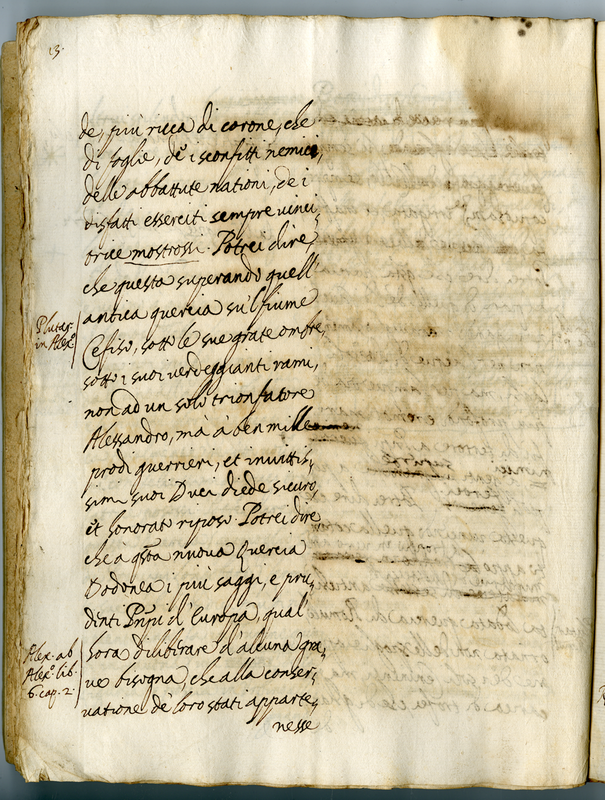 3.
de, più ricca di corone, che
di foglie, de i sconfitti nemici,
delle abbattute nationi, de i
disfatti esserciti sempre vinci,
trice mostrossi. Potrei dire,
che questa superando quell'
antica quercia su'l fiume
Plutar.
in Alex.º
Cefiso, sotto le sue grate ombre,
sotto i suoi verdeggianti rami,
non ad un solo trionfatore
Alessandro, ma à ben mille
prodi guerrieri, et invittis,
simi suoi Duci diede sicuro,
et honorato riposo. Potrei dire
che a qsta nuova Quercia
Dodonea i più saggi, e pru,
denti Prnpi d'Europa, qual'
hora dilibirare d'alcuna gra,
Alex. ab
Alex.º lib.
6. cap. 2.
ve bisogna, che alla conser,
vatione de' loro stati apparte,
nesse